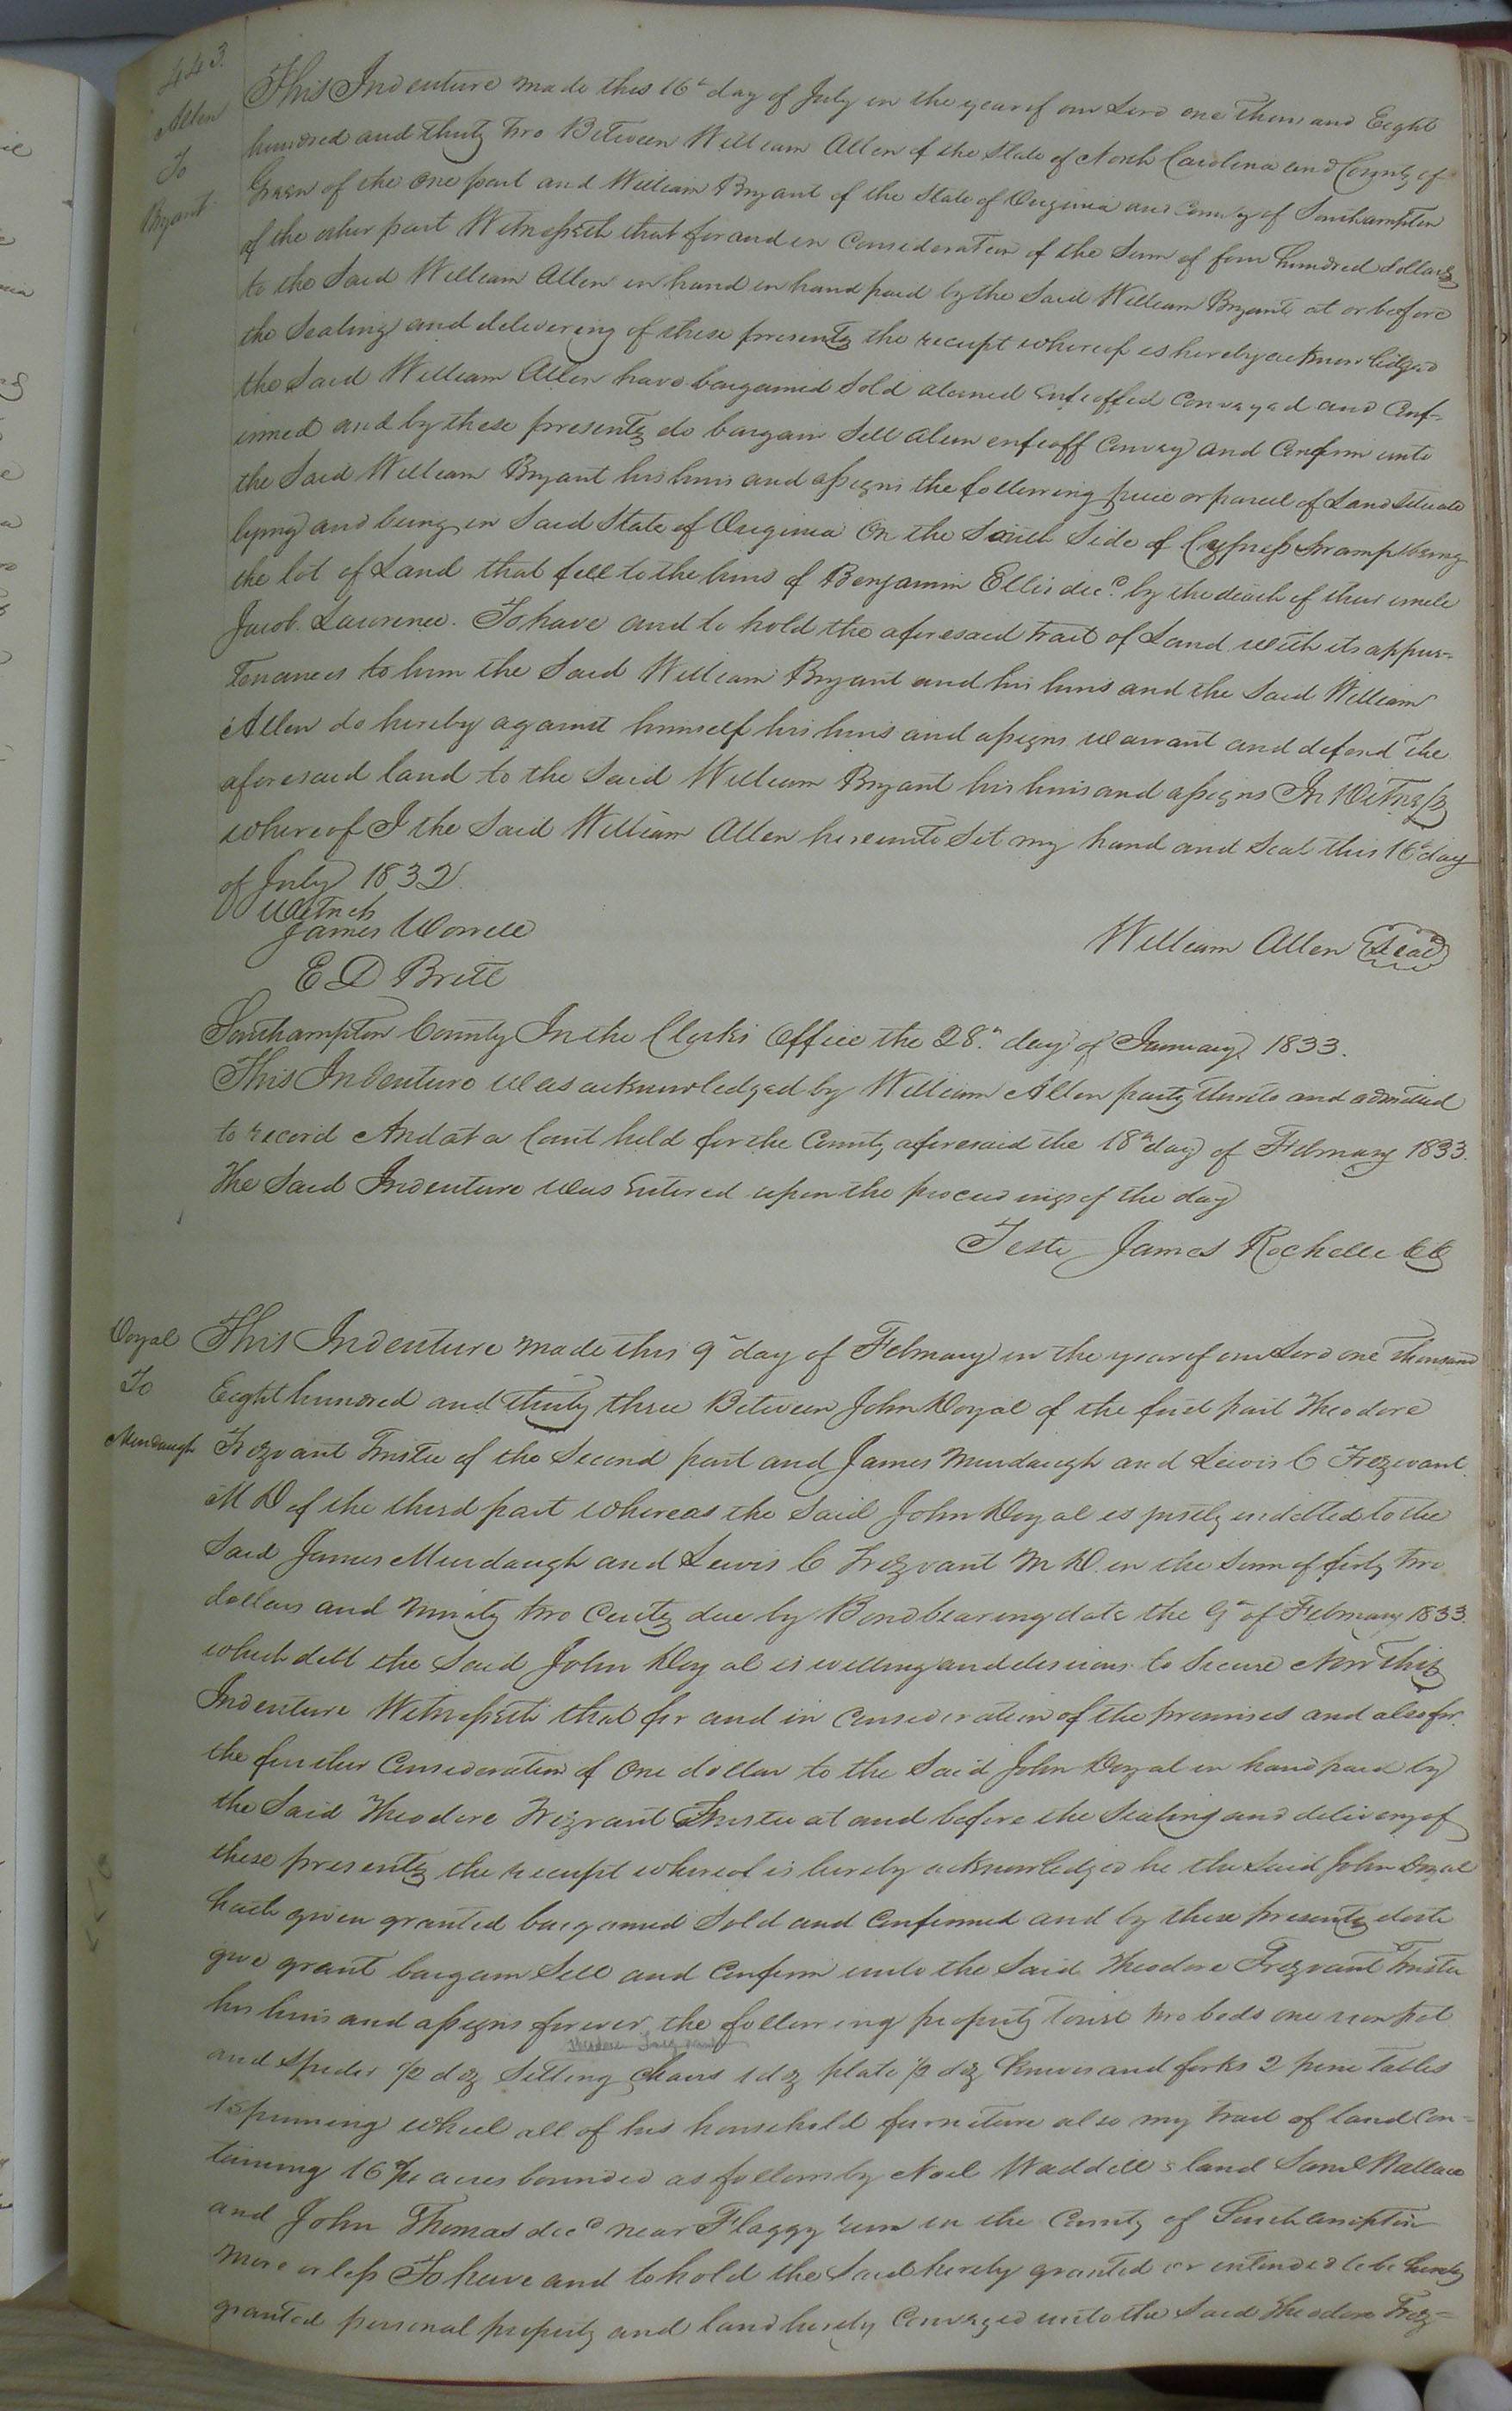 443.
Allen
To
Bryant
This Indenture made this 16th day of July in the year of our Lord one Thousand Eight
hundred and thirty two Between William Allen of the State of North Carolina and County of
Green of the one part and William Bryant of the State of Virginia and County of Southampton
of the other part Witnesseth that for and in Consideration of the Sum of four hundred dollars
to the Said William Allen in hand in hand paid by the Said William Bryant at or before
the Sealing and delivering of these presents the receipt whereof is hereby acknowledged
the Said William Allen have bargained Sold aliened enfeoffed Conveyed and Conf-
irmed and by these presents do bargain Sell alien enfeoff Convey and Confirm unto
the Said William Bryant his heirs and assigns the following piece or parcel of Land Situate
lying and being in Said State of Virginia On the South Side of Cypress Swamp being
the lot of Land that fell to the heirs of Benjamin Ellis decd. by the death of their uncle
Jacob Lawrence. To have and to hold the aforesaid tract of Land with its appur-
tenances to him the Said William Bryant and his heirs and the Said William
Allen do hereby against himself his heirs and assigns warrant and defend the
aforesaid land to the Said William Bryant his heirs and assigns In Witness
whereof I the Said William Allen hereunto Set my hand and Seal this 16th day
of July 1832.
Witness
James Worrell
William Allen Seal
E D Britt
Southampton County In the Clerks Office the 28th day of January 1833.
This Indenture was acknowledged by William Allen party thereto and admitted
to record And at a Court held for the County aforesaid the 18th day of February 1833.
the Said Indenture was Entered upon the proceedings of the day
Teste James Rochelle CC
Doyal
To
Murdaugh
This Indenture made this 9th day of February in the year of our Lord one Thousand
Eight hundred and thirty three Between John Doyal of the first part Theodore
Trezvant Trustee of the Second part and James Murdaugh and Lewis C Trezvant
M D of the third part whereas the Said John Doyal is justly indebted to the
Said James Murdaugh and Lewis C Trezvant M D in the Sum of forty two
dollars and Ninety two Cents due by Bond bearing date the 9th of February 1833.
which debt the Said John Doyal is willing and desirous to Secure Now This
Indenture Witnesseth that for and in Consideration of the premises and also for
the further Consideration of One dollar to the Said John Doyal in hand paid by
the Said Theodore Trezvant Trustee at and before the Sealing and delivery of
these presents the receipt whereof is hereby acknowledged he the Said John Doyal
hath given granted bargained Sold and Confirmed and by these presents doth
give grant bargain Sell and Confirm unto the Said Theodore Trezvant Trustee
his heirs and assigns forever the following property towit two beds one iron pot
Theodore Trezvant
and Spider 1/2 doz Sitting Chairs 1 doz plate 1/2 doz knives and forks 2 pine Tables
1 Spinning wheel all of his household furniture also my tract of land Con-
taining 16 acres bounded as follows by Noel Waddill s land Saml Wallace
and John Thomas decd near Flaggy run in the County of Southampton
more or less To have and to hold the Said hereby granted or intended to be hereby
granted personal property and land hereby Conveyed unto the Said Theodore Trez-